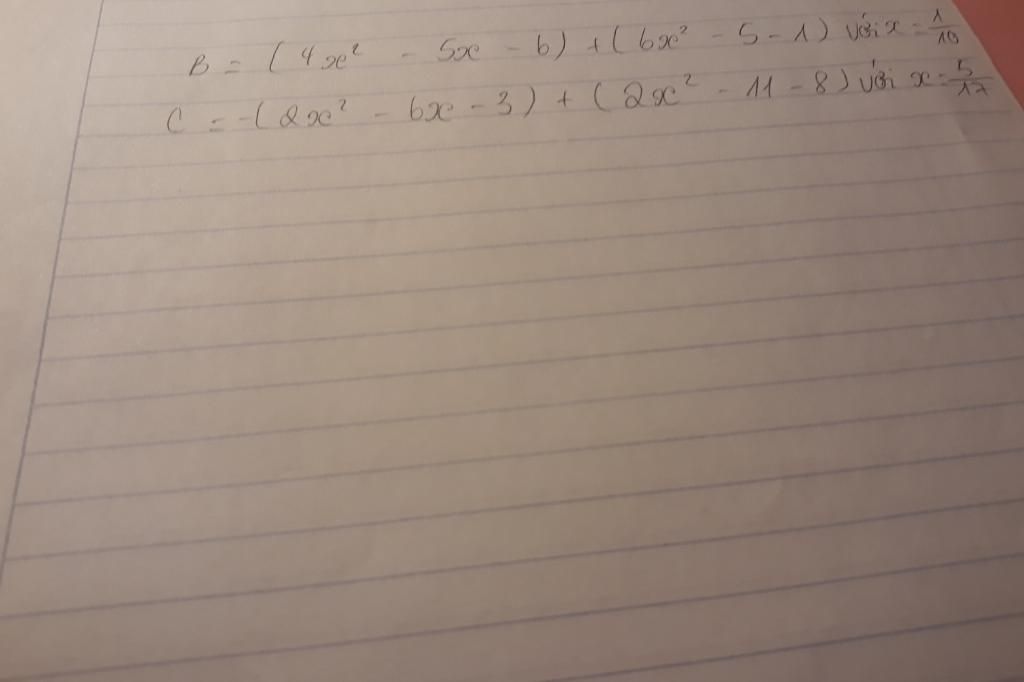 B = (4x² - 5x - 6) + (6x² - 5 - 1) với x = 1/10
C = -(2x² - 6x - 3) + (2x² - 11 - 8) với x = 5/17